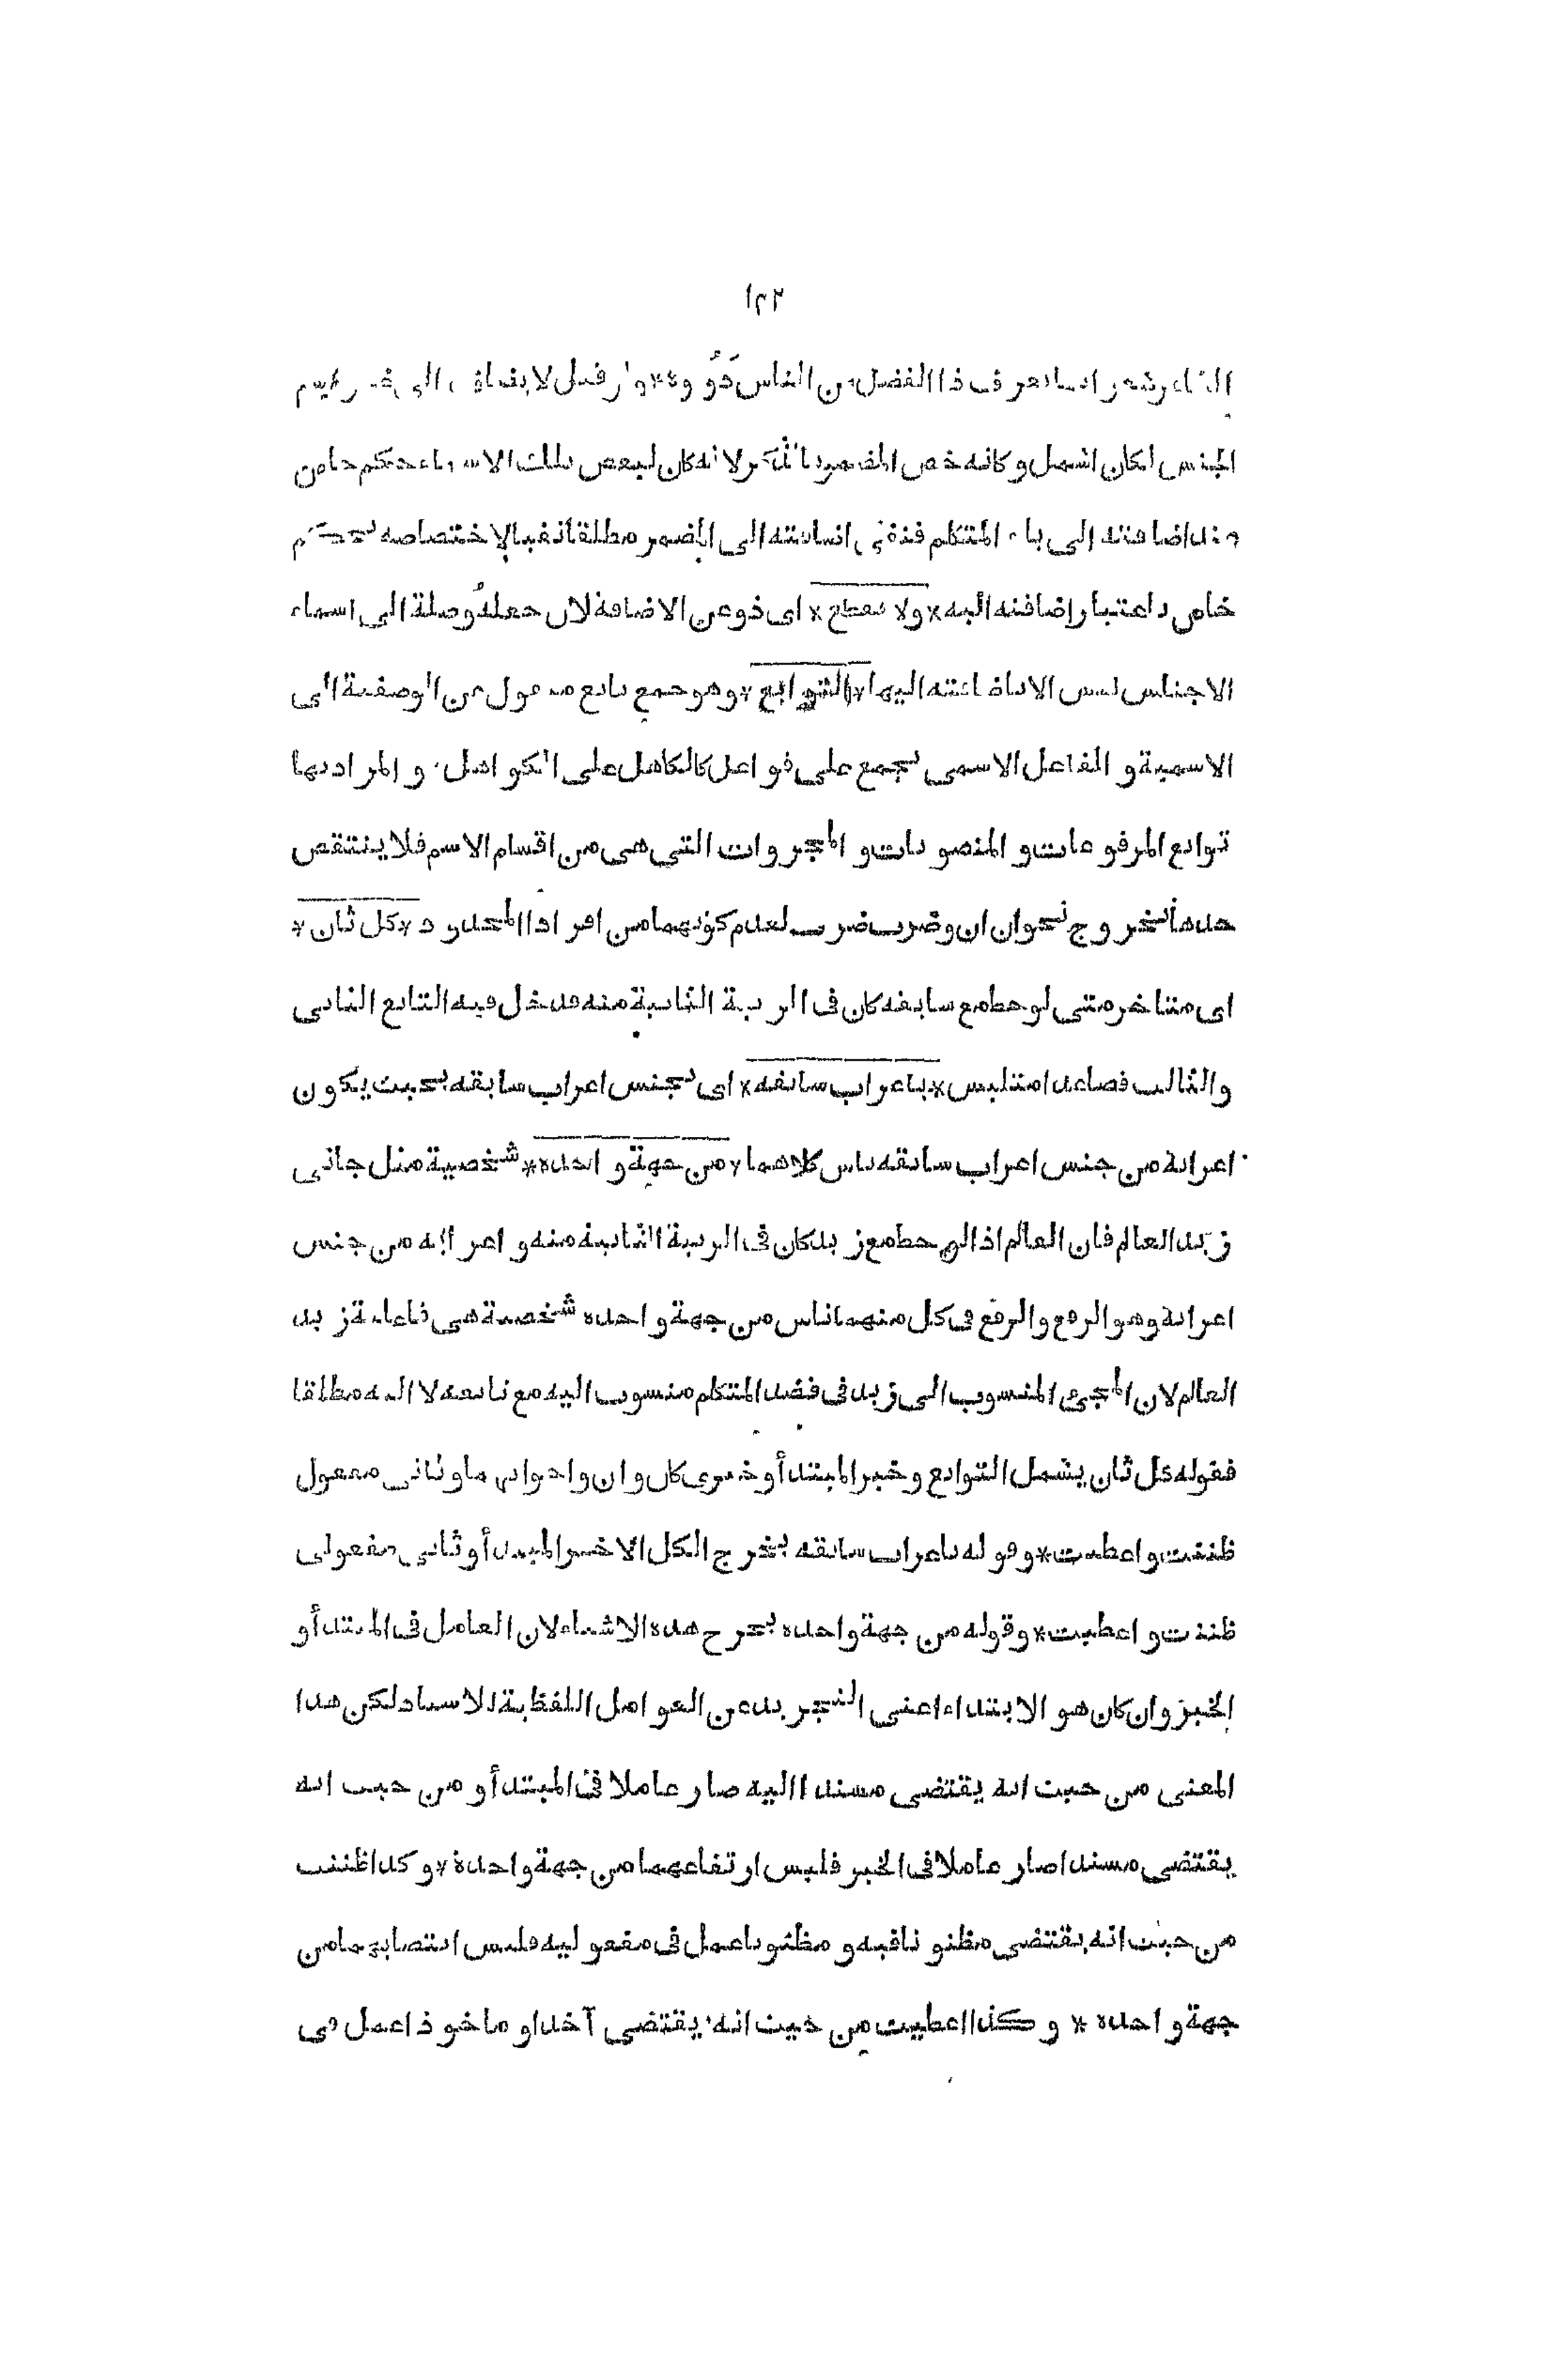 الشاعر شعر انما يعرف ذا الفضل من الناس ذووه * ولو قيل لا يضاف الى غير اسم
الجنس لكان اشمل وكانه خص المضمر بالذكر لانه كان لبعض تلك الاسماء حكم خاص
عند اضافته الى ياء المتكلم اضافته الى المضمر مطلقا نفيا لاختصاصه بحكم
خاص باعتبار اضافته اليه * ولا يقطع * اى ذو عن الاضافة لان جعله وصلة الى اسماء
الاجناس ليس الا باضافته اليها * التوابع * وهو جمع تابع منقول عن الوصفية الى
الاسمية و الفاعل الاسمى يجمع على فواعل كالكاهل على الكواهل و المراد بها
توابع المرفوعات و المنصوبات و المجرورات التى هى من اقسام الاسم فلا ينتقض
حدها بخروج نحو ان ان وضرب ضرب لعدم كونهما من افراد المحدود * كل ثان *
اى متاخر متى لوحظ مع سابقه كان فى الرتبة الثانية منه فدخل فيه التابع الثانى
والثالث فصاعدا متلبس * باعراب سابقه * اى بجنس اعراب سابقه بحيث يكون
اعرابه من جنس اعراب سابقه ناش كلاهما * من جهة واحدة * شخصية مثل جاءنى
زيد العالم فان العالم اذا لوحظ مع زيد كان فى الرتبة الثانية منه و اعرابه من جنس
اعرابه وهو الرفع والرفع فى كل منهما ناش من جهة واحدة شخصية هى فاعلية زيد
العالم لان المجئ المنسوب الى زيد فى قصد المتكلم منسوب اليه مع تابعه لا اليه مطلقا
فقوله كل ثان يشمل التوابع وخبر المبتدأ وخبرى كان و ان واخواتهما وثانى مفعول
ظننت واعطيت * وقوله باعراب سابقه يخرج الكل الا خبر المبتدأ وثانى مفعولى
ظننت و اعطيت * وقوله من جهة واحدة يخرج هذه الاشياء لان العامل فى المبتدأ و
الخبر وان كان هو الابتداء اعنى التجريد عن العوامل اللفظية للاسناد لكن هذا
المعنى من حيث انه يقتضى مسندا اليه صار عاملا فى المبتدأ و من حيث انه
يقتضى مسندا صار عاملا فى الخبر فليس ارتفاعهما من جهة واحدة * وكذا ظننت
من حيث انه يقتضى مظنونا فيه و مظنونا عمل فى مفعوليه فليس انتصابهما من
جهة واحدة * و كذا اعطيت من حيث انه يقتضى آخذا و ماخوذا عمل فى